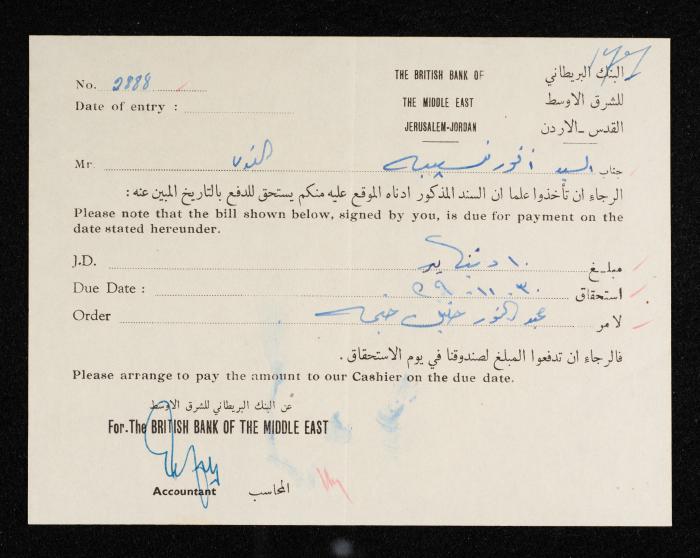 No. 2888
Date of entry :
THE BRITISH BANK OF
THE MIDDLE EAST
JERUSALEM-JORDAN
البنك البريطاني
للشرق الاوسط
القدس ــ الاردن
Mr. جناب السيد انور نسيبه القدس
الرجاء ان تأخذوا علما ان السند المذكور ادناه الموقع عليه منكم يستحق للدفع بالتاريخ المبين عنه :
Please note that the bill shown below, signed by you, is due for payment on the
date stated hereunder.
J.D. مبلــغ ١٠ دنانير
Due Date : استحقاق ٣٠ . ١١ . ٥٩
Order لامر عبد النور خليل
فالرجاء ان تدفعوا المبلغ لصندوقنا في يوم الاستحقاق .
Please arrange to pay the amount to our Cashier on the due date.
عن البنك البريطاني للشرق الاوسط
For. The BRITISH BANK OF THE MIDDLE EAST
Accountant المحاسب